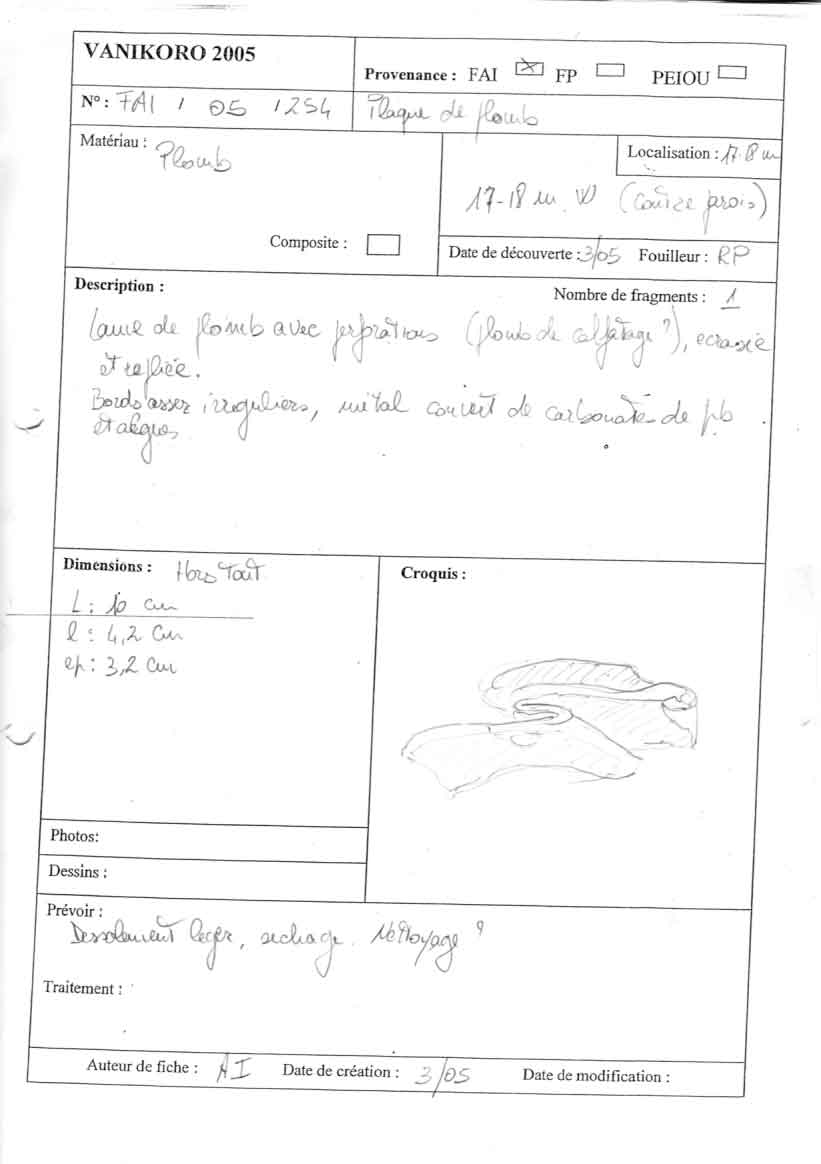 VANIKORO 2005
Provenance : FAI FP PEIOU
N° : FAI / 05 / 254
Plaque de plomb
Matériau : Plomb
Localisation : 17.18 m
17-18 m W (contre parois)
Composite :
Date de découverte : 3/05 Fouilleur : RP
Description :
Nombre de fragments : 1
Lame de plomb avec perforations (plomb de calfatage ?), ecrasée
et repliée.
Bords assez irreguliers, métal couvert de carbonates de pb
et algues
Dimensions : Hors Tout
L : 10 cm
l : 4,2 cm
ep : 3,2 cm
Croquis :
Photos:
Dessins :
Prévoir :
Dessalement leger, sechage. Nettoyage ?
Traitement :
Auteur de fiche : AI Date de création : 3/05 Date de modification :